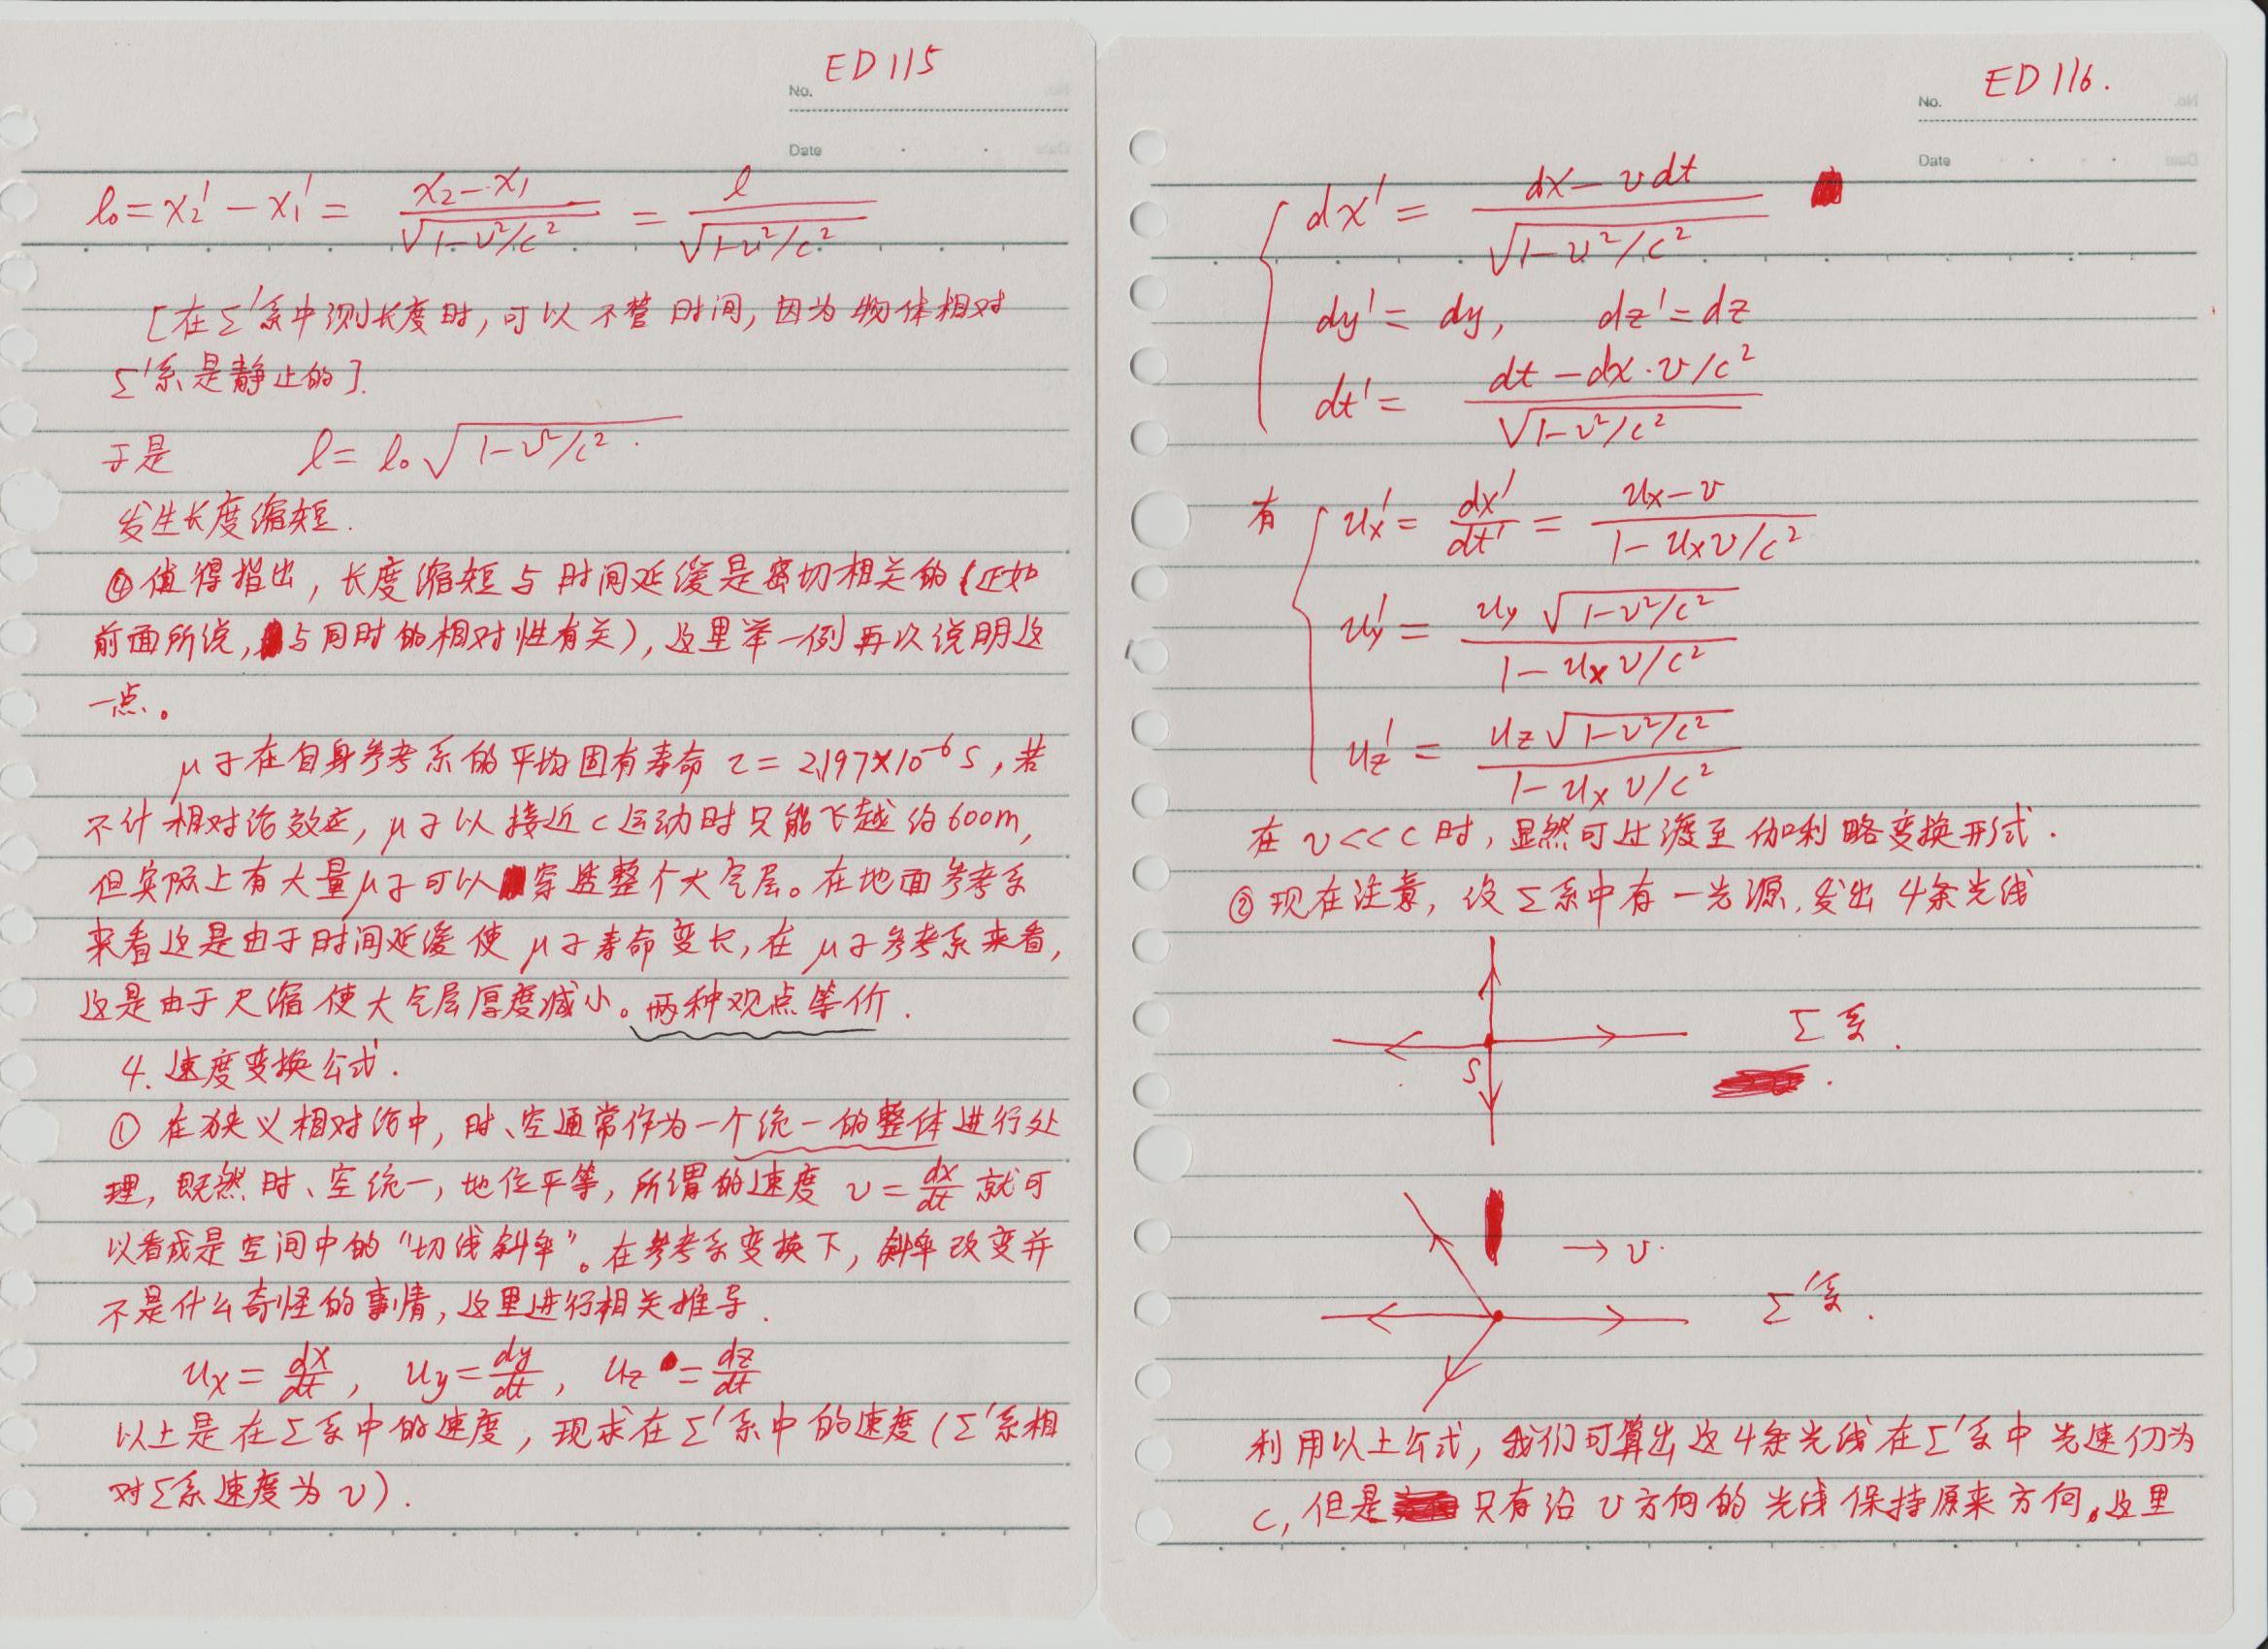 ED 115
No.
Date
l₀ = x₂′ − x₁′ = (x₂ − x₁)/√(1−v²/c²) = l/√(1−v²/c²)
[在Σ′系中测长度时,可以不管时间,因为物体相对
Σ′系是静止的].
于是 l = l₀√(1−v²/c²).
发生长度缩短.
④值得指出,长度缩短与时间延缓是密切相关的(正如
前面所说,与同时的相对性有关),这里举一例再次说明这
一点。
μ子在自身参考系的平均固有寿命 τ = 2.197×10⁻⁶ s,若
不计相对论效应,μ子以接近c运动时只能飞越约600m,
但实际上有大量μ子可以穿透整个大气层。在地面参考系
来看这是由于时间延缓使μ子寿命变长,在μ子参考系来看,
这是由于尺缩使大气层厚度减小。两种观点等价.
4. 速度变换公式.
① 在狭义相对论中,时、空通常作为一个统一的整体进行处
理,既然时、空统一,地位平等,所谓的速度 v = dx/dt 就可
以看成是空间中的“切线斜率”。在参考系变换下,斜率改变并
不是什么奇怪的事情,这里进行相关推导.
uₓ = dx/dt, u_y = dy/dt, u_z = dz/dt
以上是在Σ系中的速度,现求在Σ′系中的速度(Σ′系相
对Σ系速度为v).
ED 116.
No.
Date
dx′ = (dx − vdt)/√(1−v²/c²)
dy′ = dy, dz′ = dz
dt′ = (dt − dx·v/c²)/√(1−v²/c²)
有 uₓ′ = dx′/dt′ = (uₓ − v)/(1 − uₓv/c²)
u_y′ = u_y√(1−v²/c²)/(1 − uₓv/c²)
u_z′ = u_z√(1−v²/c²)/(1 − uₓv/c²)
在 v<<c 时,显然可过渡至伽利略变换形式.
②现在注意,设Σ系中有一光源,发出4条光线
Σ系.
S
→ v.
Σ′系.
利用以上公式,我们可算出这4条光线在Σ′系中光速仍为
c,但是只有沿v方向的光线保持原来方向。这里